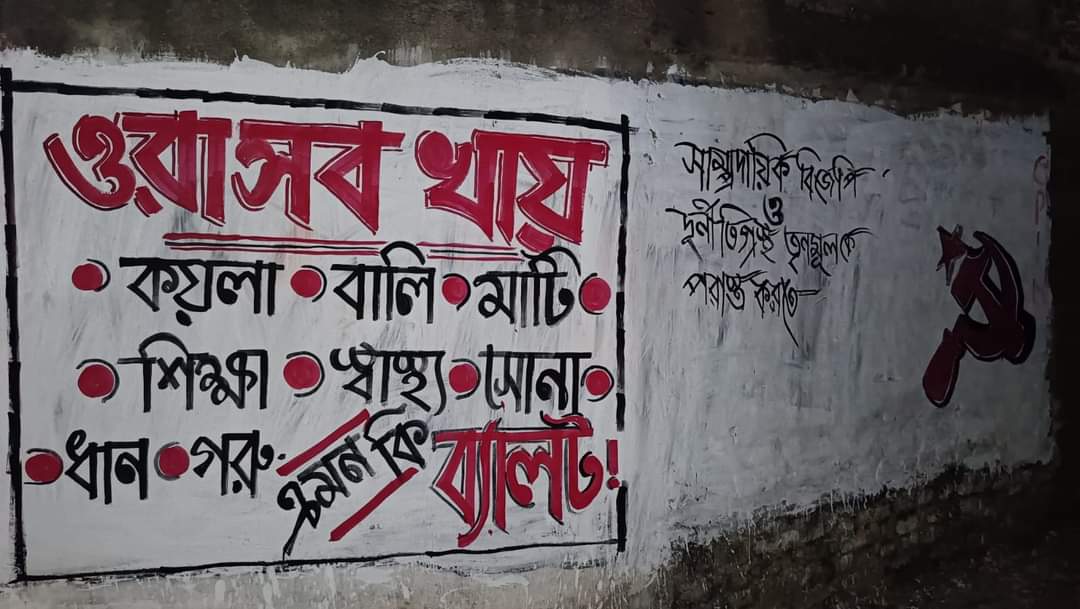 ওরা সব খায়
• কয়লা • বালি • মাটি •
• শিক্ষা • স্বাস্থ্য • সোনা •
• ধান • গরু এমন কি ব্যালট!
সাম্প্রদায়িক বিজেপি
ও
দুর্নীতিগ্রস্থ তৃনমূলকে
পরাস্ত করতে